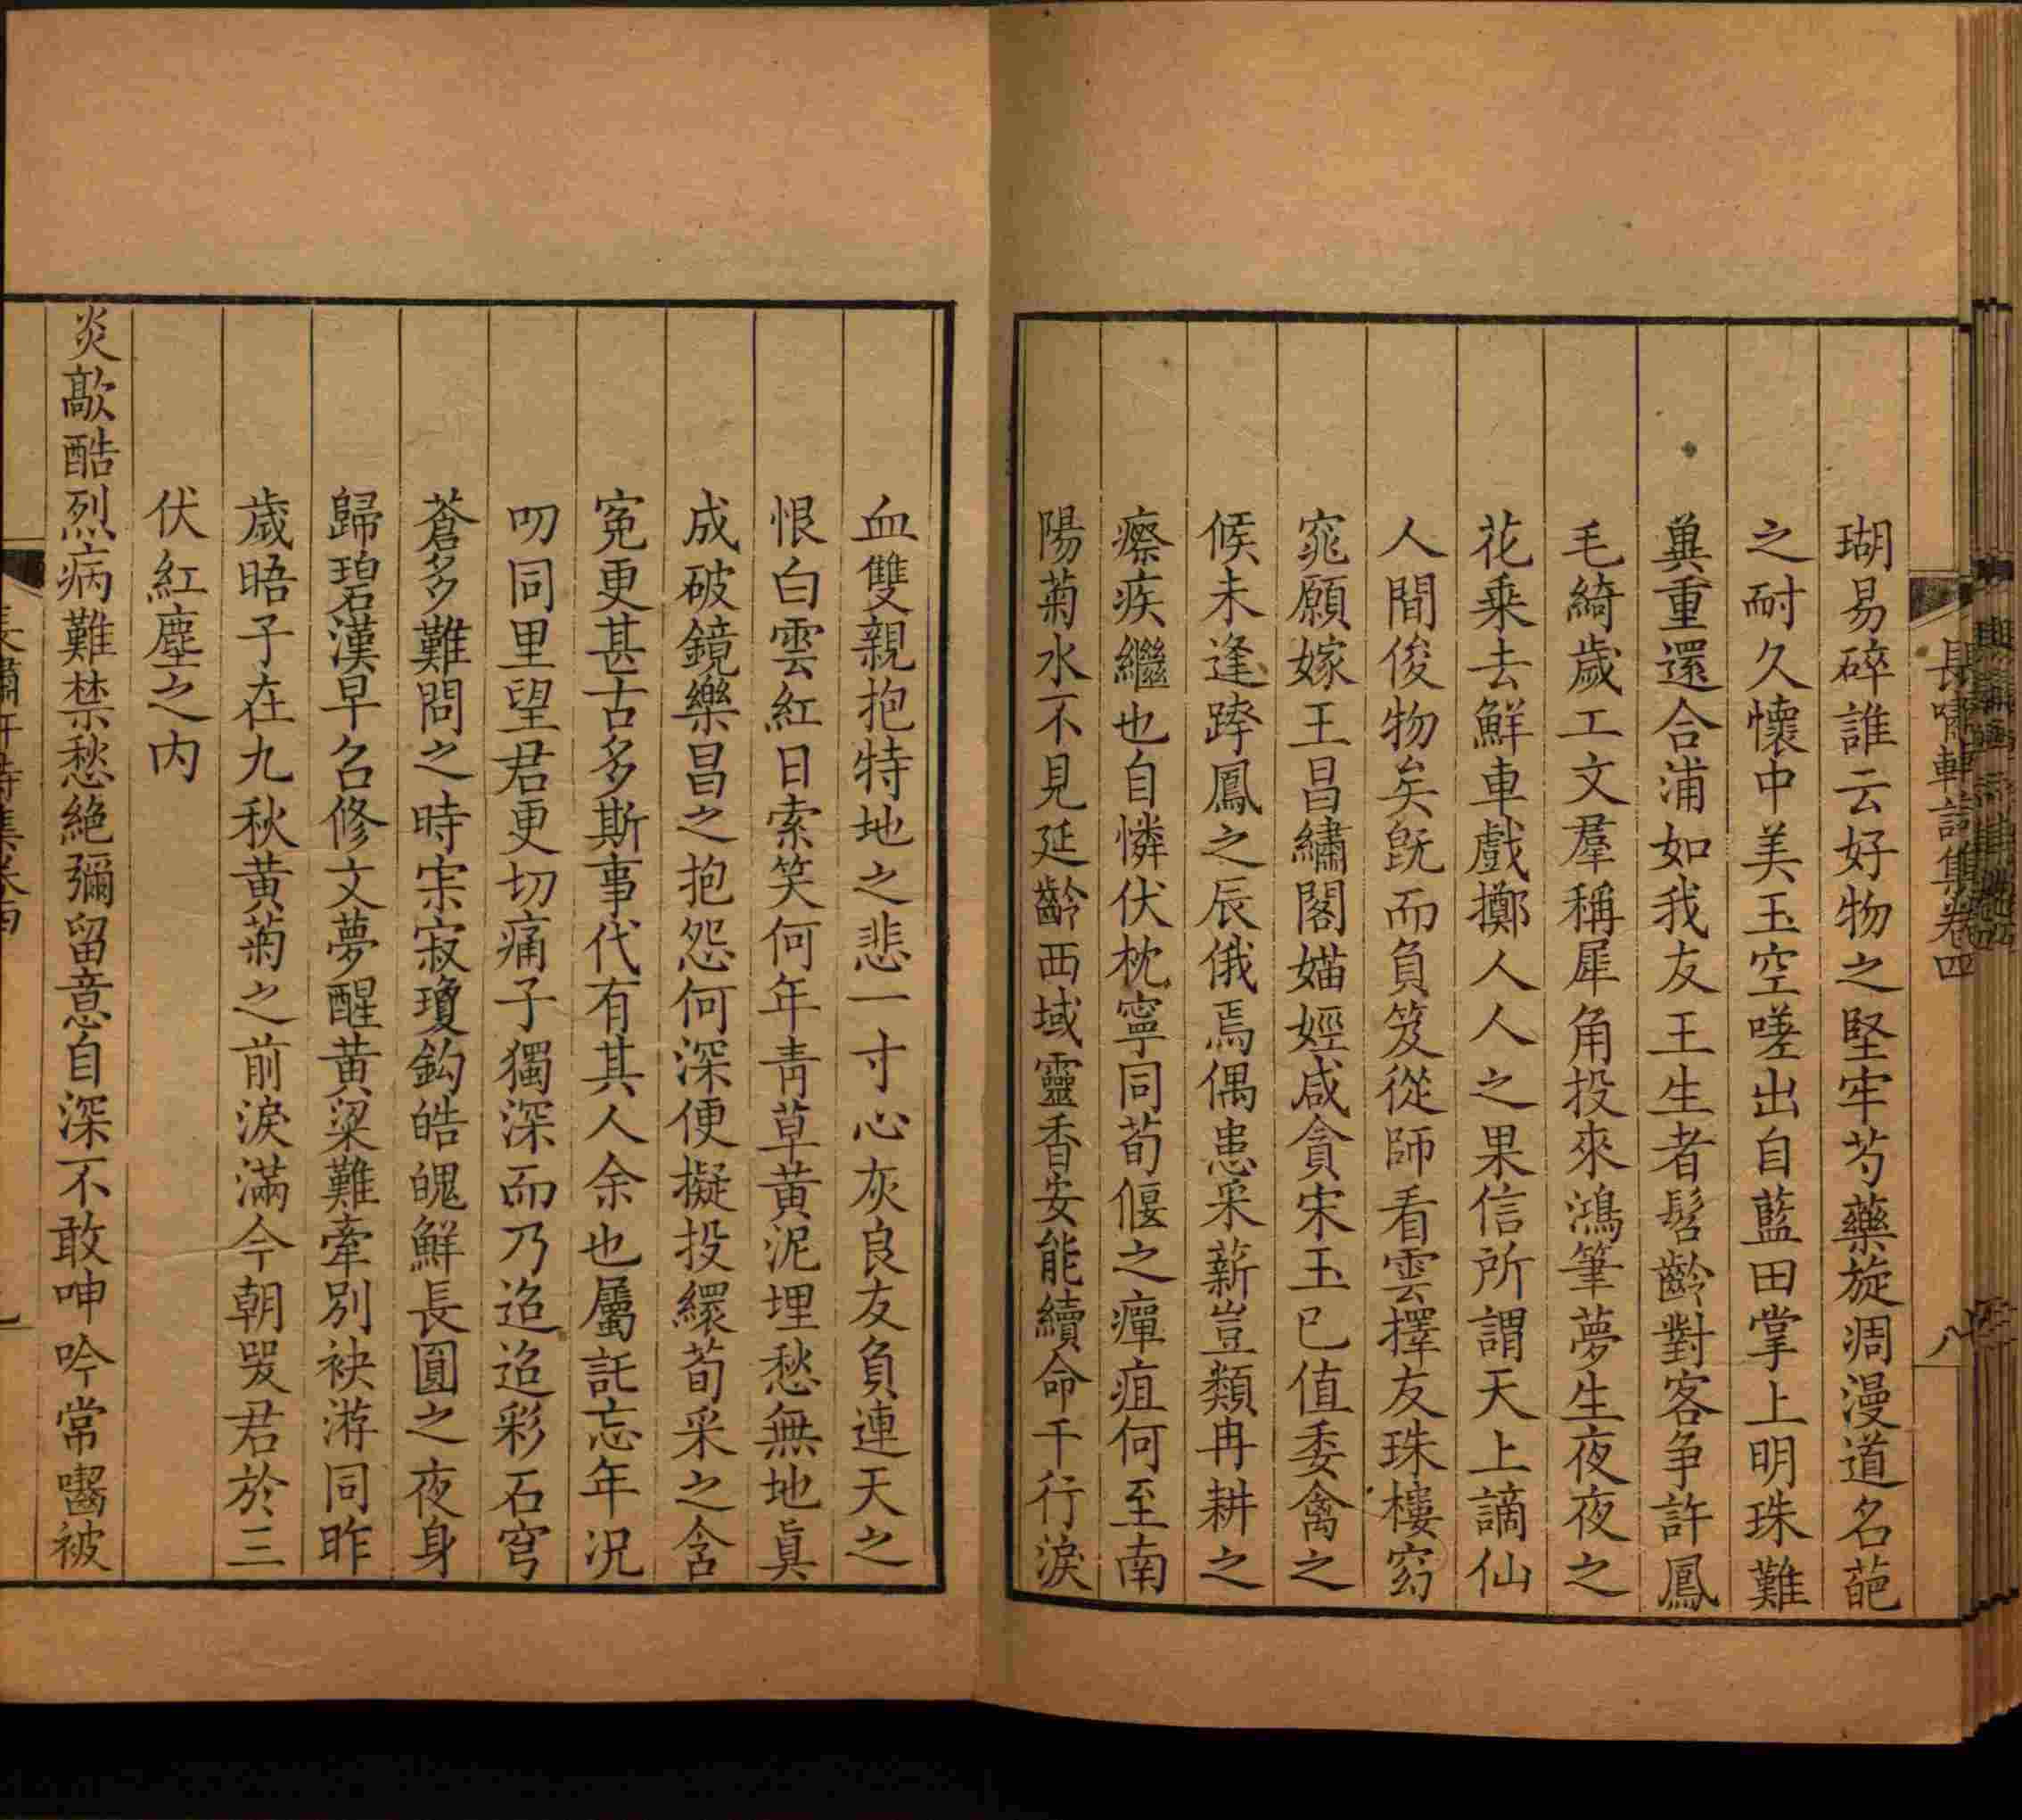 長嘯軒詩集卷四
八
瑚易碎誰云好物之堅牢芍藥旋凋漫道名葩
之耐久懷中美玉空嗟出自藍田掌上明珠難
兾重還合浦如我友王生者髫齡對客争許鳳
毛綺歲工文羣稱犀角投來鴻筆夢生夜夜之
花乗去鮮車戲擲人人之果信所謂天上謫仙
人間俊物矣旣而負笈從師看雲擇友珠樓窈
窕願嫁王昌繡閣媌娙咸貪宋玉已值委禽之
候未逢跨鳳之辰俄焉偶患采薪豈類冉耕之
瘵疾繼也自憐伏枕寧同荀偃之癉疽何至南
陽菊水不見延齡西域靈香安能續命千行淚
血雙親抱特地之悲一寸心灰良友負連天之
恨白雲紅日索笑何年青草黄泥埋愁無地眞
成破鏡樂昌之抱怨何深便擬投繯荀采之含
冤更甚古多斯事代有其人余也屬託忘年况
叨同里望君更切痛子獨深而乃迢迢彩石穹
蒼多難問之時宗寂瓊鈎皓魄鮮長圓之夜身
歸碧漢早召修文夢醒黄粱難牽別袂游同昨
歲晤子在九秋黄菊之前淚滿今朝哭君於三
伏紅塵之内
炎歊酷烈病難禁愁絶彌留意自深不敢呻吟常囓被